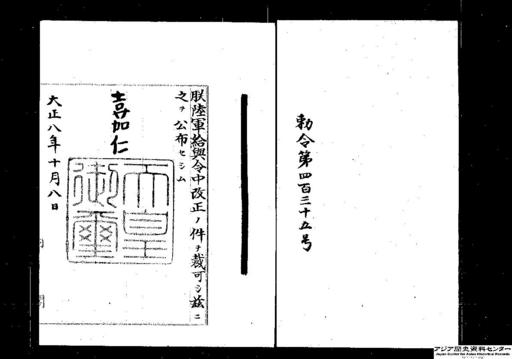 勅令第四百三十五号
朕陸軍給與令中改正ノ件ヲ裁可シ茲ニ
之ヲ公布セシム
嘉仁
天皇
御璽
大正八年十月八日
アジア歴史資料センター
Japan Center for Asian Historical Records